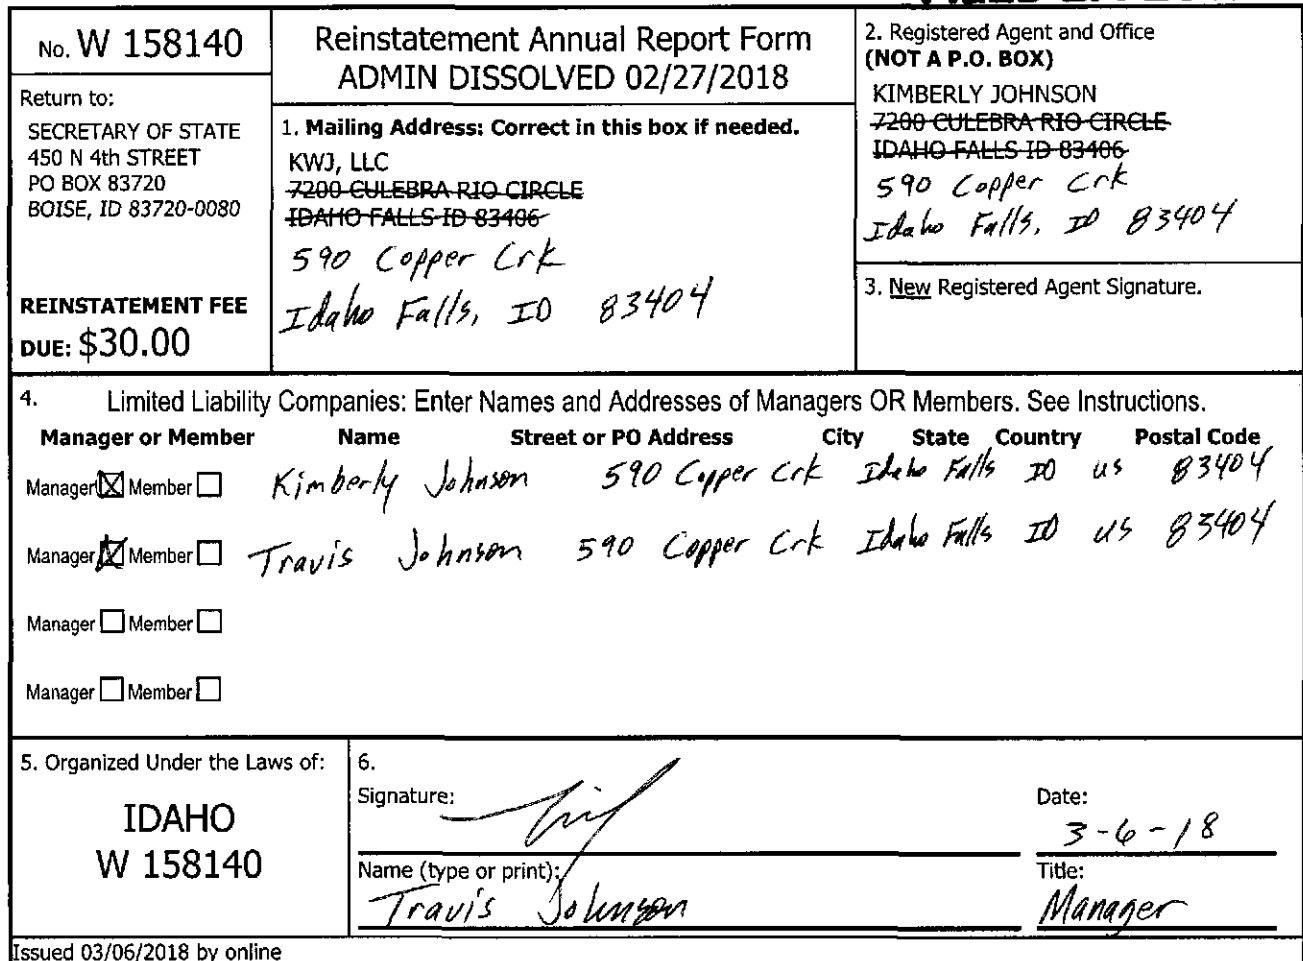 No. W 158140
Return to:
SECRETARY OF STATE
450 N 4th STREET
PO BOX 83720
BOISE, ID 83720-0080
REINSTATEMENT FEE
DUE: $30.00
Reinstatement Annual Report Form
ADMIN DISSOLVED 02/27/2018
1. Mailing Address: Correct in this box if needed.
KWJ, LLC
7200 CULEBRA RIO CIRCLE
IDAHO FALLS ID 83406
590 Copper Crk
Idaho Falls, ID 83404
2. Registered Agent and Office
(NOT A P.O. BOX)
KIMBERLY JOHNSON
7200 CULEBRA RIO CIRCLE
IDAHO FALLS ID 83406
590 Copper Crk
Idaho Falls, ID 83404
3. New Registered Agent Signature.
4. Limited Liability Companies: Enter Names and Addresses of Managers OR Members. See Instructions.
Manager or Member Name Street or PO Address City State Country Postal Code
Manager Member Kimberly Johnson 590 Copper Crk Idaho Falls ID US 83404
Manager Member Travis Johnson 590 Copper Crk Idaho Falls ID US 83404
Manager Member
Manager Member
5. Organized Under the Laws of:
IDAHO
W 158140
6.
Signature:
Date:
3-6-18
Name (type or print):
Travis Johnson
Title:
Manager
Issued 03/06/2018 by online